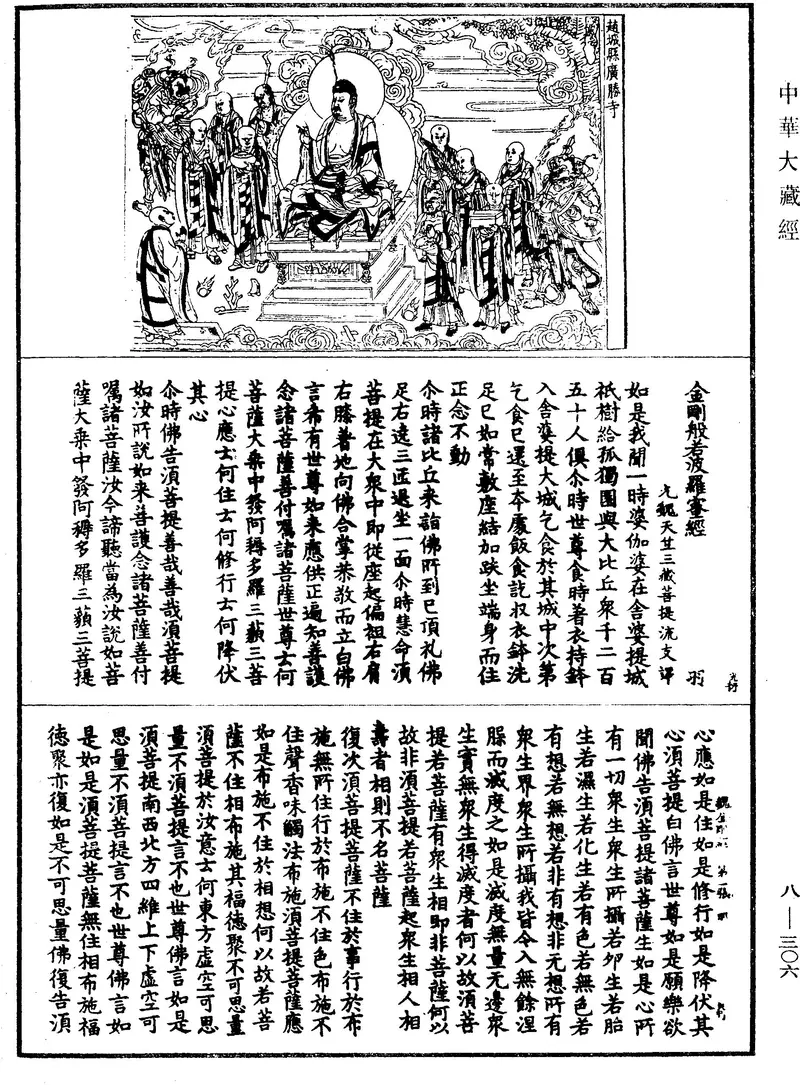 中華大藏經
趙城縣廣勝寺
金剛般若波羅蜜經　羽
元魏天竺三藏菩提流支譯
如是我聞一時婆伽婆在舍婆提城
祇樹給孤獨園與大比丘衆千二百
五十人俱尒時世尊食時著衣持鉢
入舍婆提大城乞食於其城中次第
乞食已還至本處飯食訖収衣鉢洗
足已如常敷座結加趺坐端身而住
正念不動
尒時諸比丘来詣佛所到已頂礼佛
足右遶三匝退坐一面尒時慧命湏
菩提在大衆中即從座起偏袒右肩
右膝著地向佛合掌恭敬而立白佛
言希有世尊如来應供正遍知善護
念諸菩薩善付囑諸菩薩世尊云何
菩薩大乗中發阿耨多羅三藐三菩
提心應云何住云何修行云何降伏
其心
尒時佛告湏菩提善哉善哉湏菩提
如汝所說如来善護念諸菩薩善付
囑諸菩薩汝今諦聽當為汝說如菩
薩大乗中發阿耨多羅三藐三菩提
心應如是住如是修行如是降伏其
心湏菩提白佛言世尊如是願樂欲
聞佛告湏菩提諸菩薩生如是心所
有一切衆生衆生所攝若夘生若胎
生若濕生若化生若有色若無色若
有想若無想若非有想非无想所有
衆生界衆生所攝我皆令入無餘涅
脖而滅度之如是滅度無量无邊衆
生實無衆生得滅度者何以故湏菩
提若菩薩有衆生相即非菩薩何以
故非湏菩提若菩薩起衆生相人相
壽者相則不名菩薩
復次湏菩提菩薩不住於事行於布
施無所住行於布施不住色布施不
住聲香味觸法布施湏菩提菩薩應
如是布施不住於相想何以故若菩
薩不住相布施其福德聚不可思量
湏菩提於汝意云何東方虛空可思
量不湏菩提言不也世尊佛言如是
湏菩提南西北方四維上下虛空可
思量不湏菩提言不也世尊佛言如
是如是湏菩提菩薩無住相布施福
德聚亦復如是不可思量佛復告湏
八—三〇六